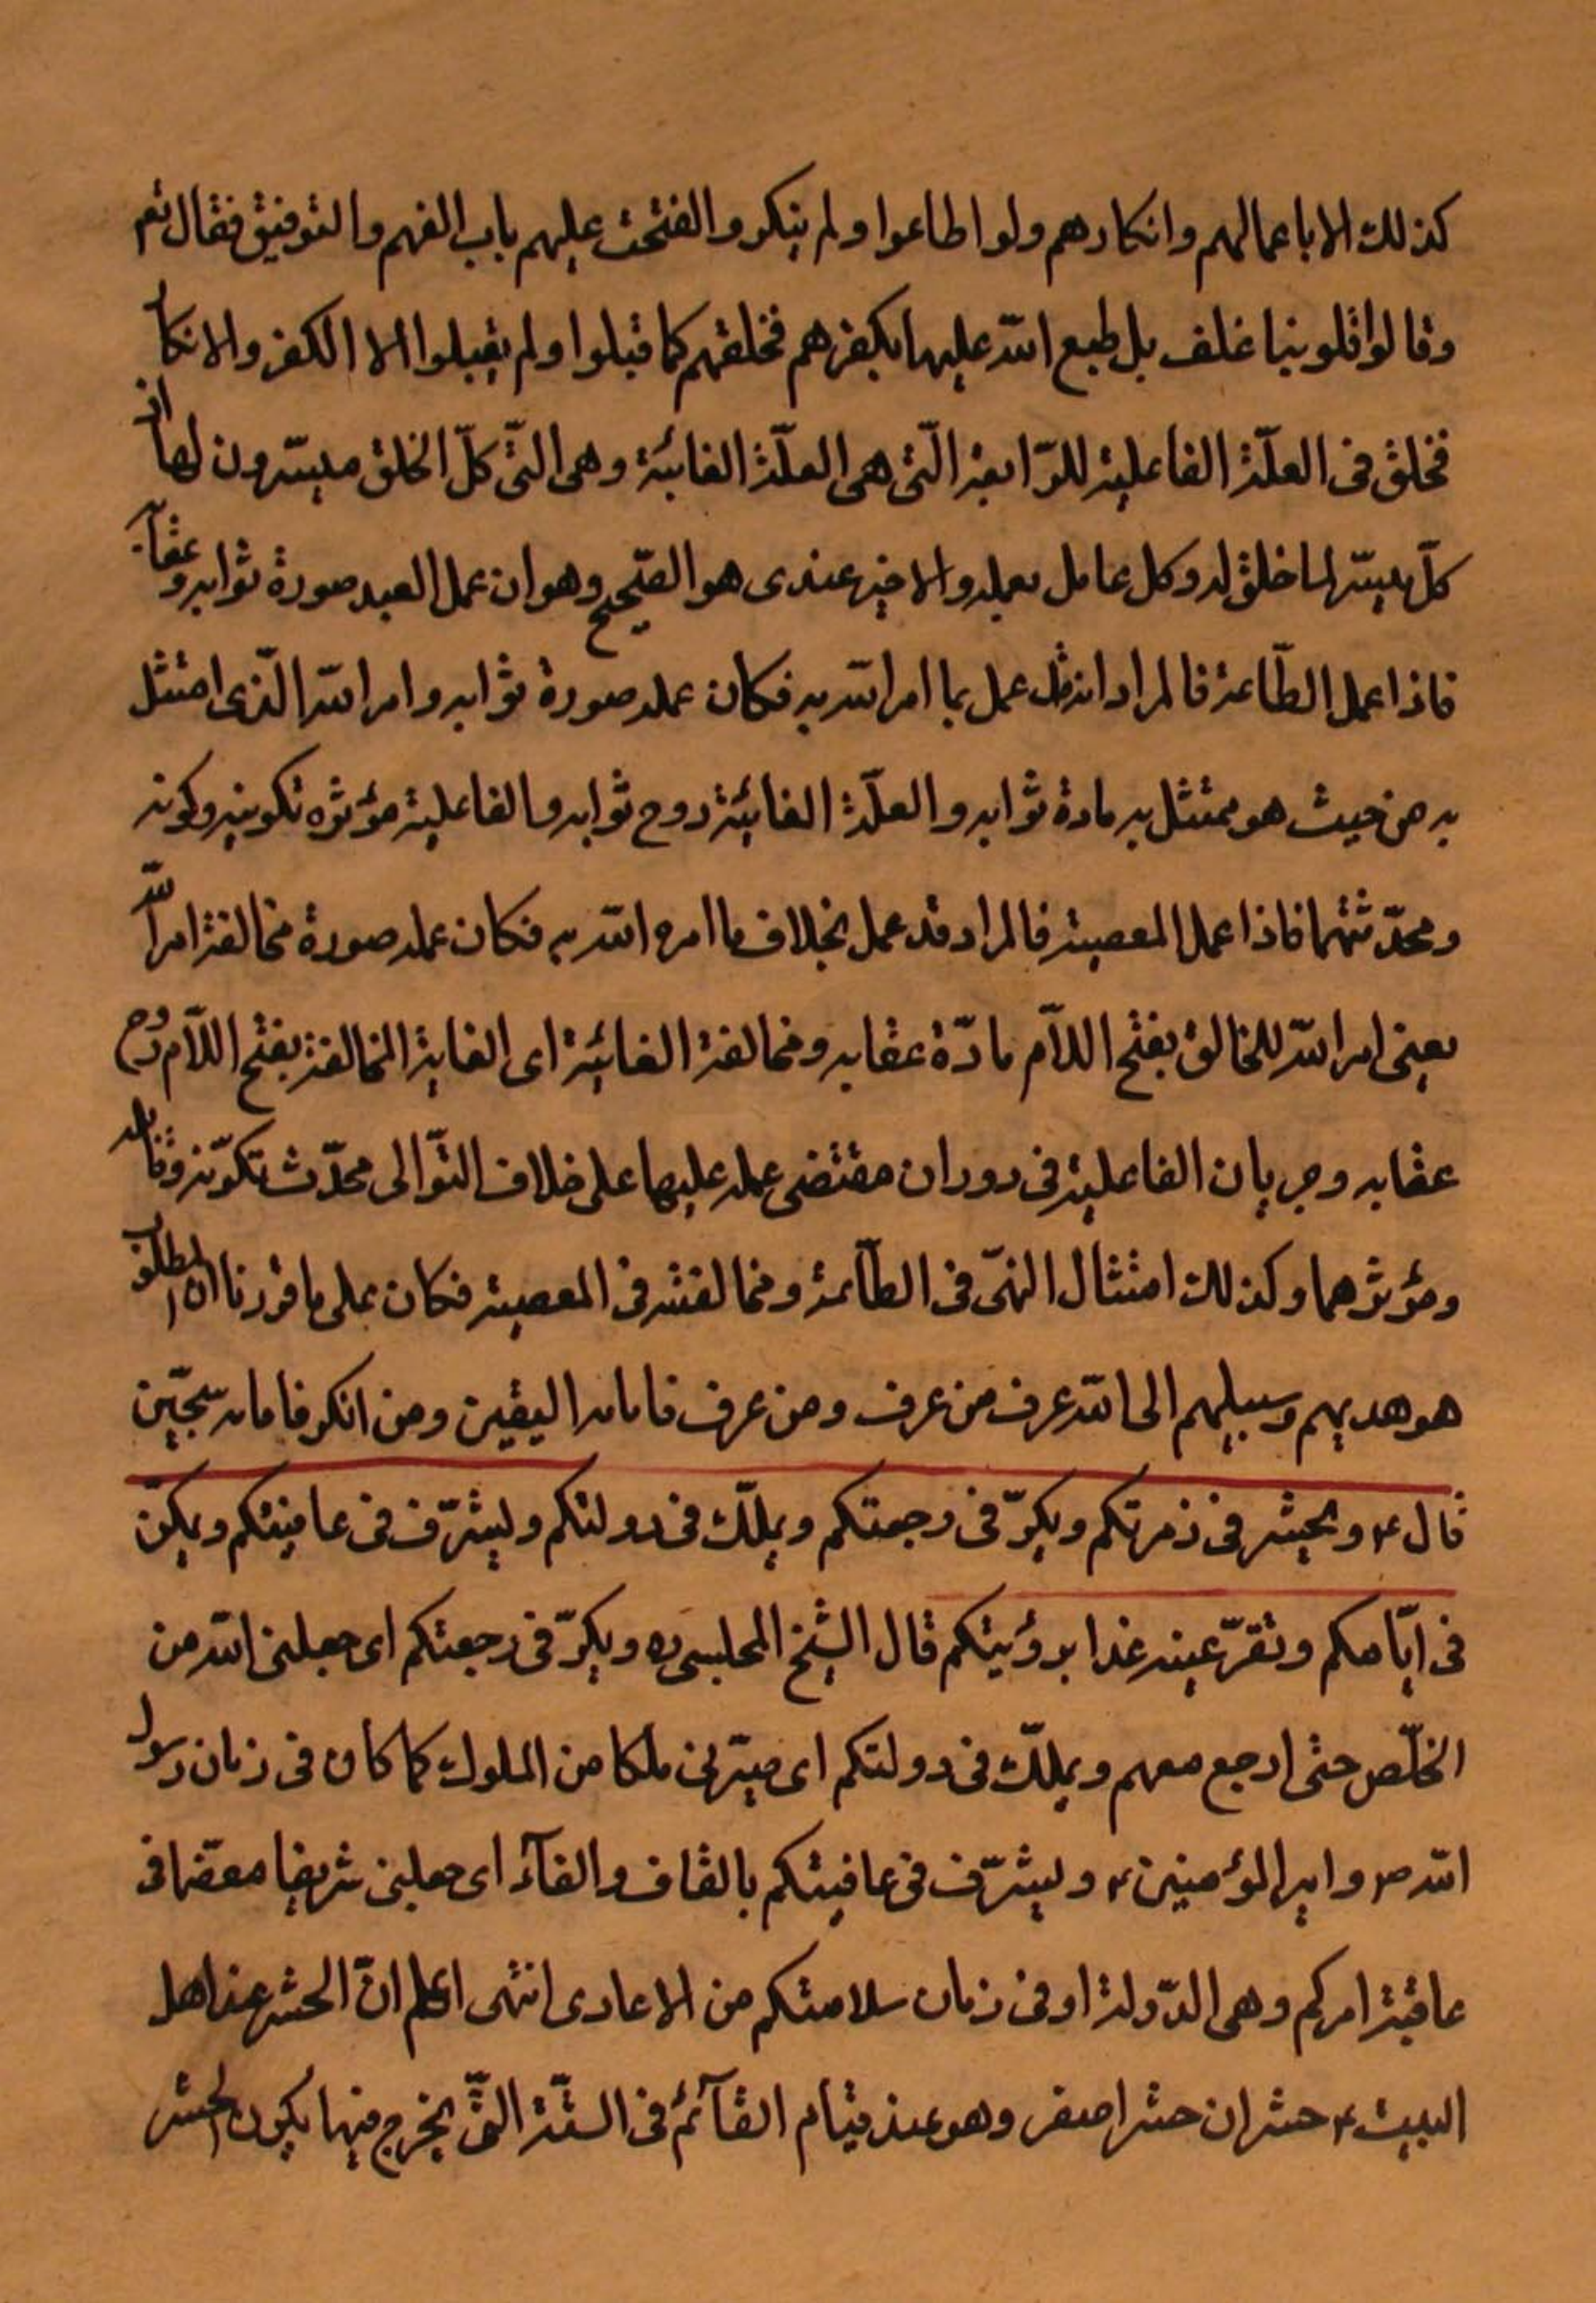 كذلك الا باعمالهم وانكارهم ولو اطاعوا ولم ينكروا لفتحت عليهم باب الفهم والتوفيق فقال تعم
وقالوا قلوبنا غلف بل طبع الله عليها بكفرهم فخلقهم كما قبلوا ولم يقبلوا الا الكفر والانكار
فخلق فى العلّة الفاعلية للرّابعة الّتى هى العلّة الغائيّة وهى الّتى كلّ الخلق ميسّرون لها اذ
كلّ ميسّر لما خلق له وكل عامل بعمله والاخير عندى هو الصّحيح وهو ان عمل العبد صورة ثوابه وعقابه
فاذا عمل الطّاعة فالمراد انه قد عمل بما امر الله به فكان عمله صورة ثوابه وامر الله الّذى امتثل
به من حيث هو ممتثل به مادة ثوابه والعلّة الغائيّة روح ثوابه والفاعلية مؤثره تكوينه وكونه
ومحدّثتهما فاذا عمل المعصية فالمراد قد عمل بخلاف ما امره الله به فكان عمله صورة مخالفة امر الله
يعنى امر الله للمخالف بفتح اللام مادّة عقابه ومخالفة الغائيّة اى الغاية المخالفة بفتح اللّام روح
عقابه وجريان الفاعلية فى دوران مقتضى عمله عليها على خلاف التّوالى محدّث تكوّنه وثقله
ومؤثرهما وكذلك امتثال النهى فى الطّاعة ومخالفته فى المعصية فكان على ما قررنا ان المطلوب
هو هديهم وسبيلهم الى الله عرف من عرف ومن عرف فامامه اليقين ومن انكر فامامه سجّين
قال ع ويحشر فى زمرتكم ويكرّ فى رجعتكم ويملّك فى دولتكم ويشرّف فى عافيتكم ويمكّن
فى ايّامكم وتقرّ عينه غدا برؤيتكم قال الشيخ المجلسى ره ويكرّ فى رجعتكم اى جعلنى الله من
الخلّص حتى ارجع معهم ويملّك فى دولتكم اى صيّرنى ملكا من الملوك كما كان فى زمان رسول
الله ص وامير المؤمنين ع ويشرّف فى عافيتكم بالقاف والفآء اى جعلنى شريفا معظما فى
عاقبة امركم وهى الدّولة او فى زمان سلامتكم من الاعادى انتهى اعلم انّ الحشر عند اهل
البيت ع حشران حشر اصغر وهو عند قيام القآئم فى السنّة الّتى يخرج فيها يكون الحشر